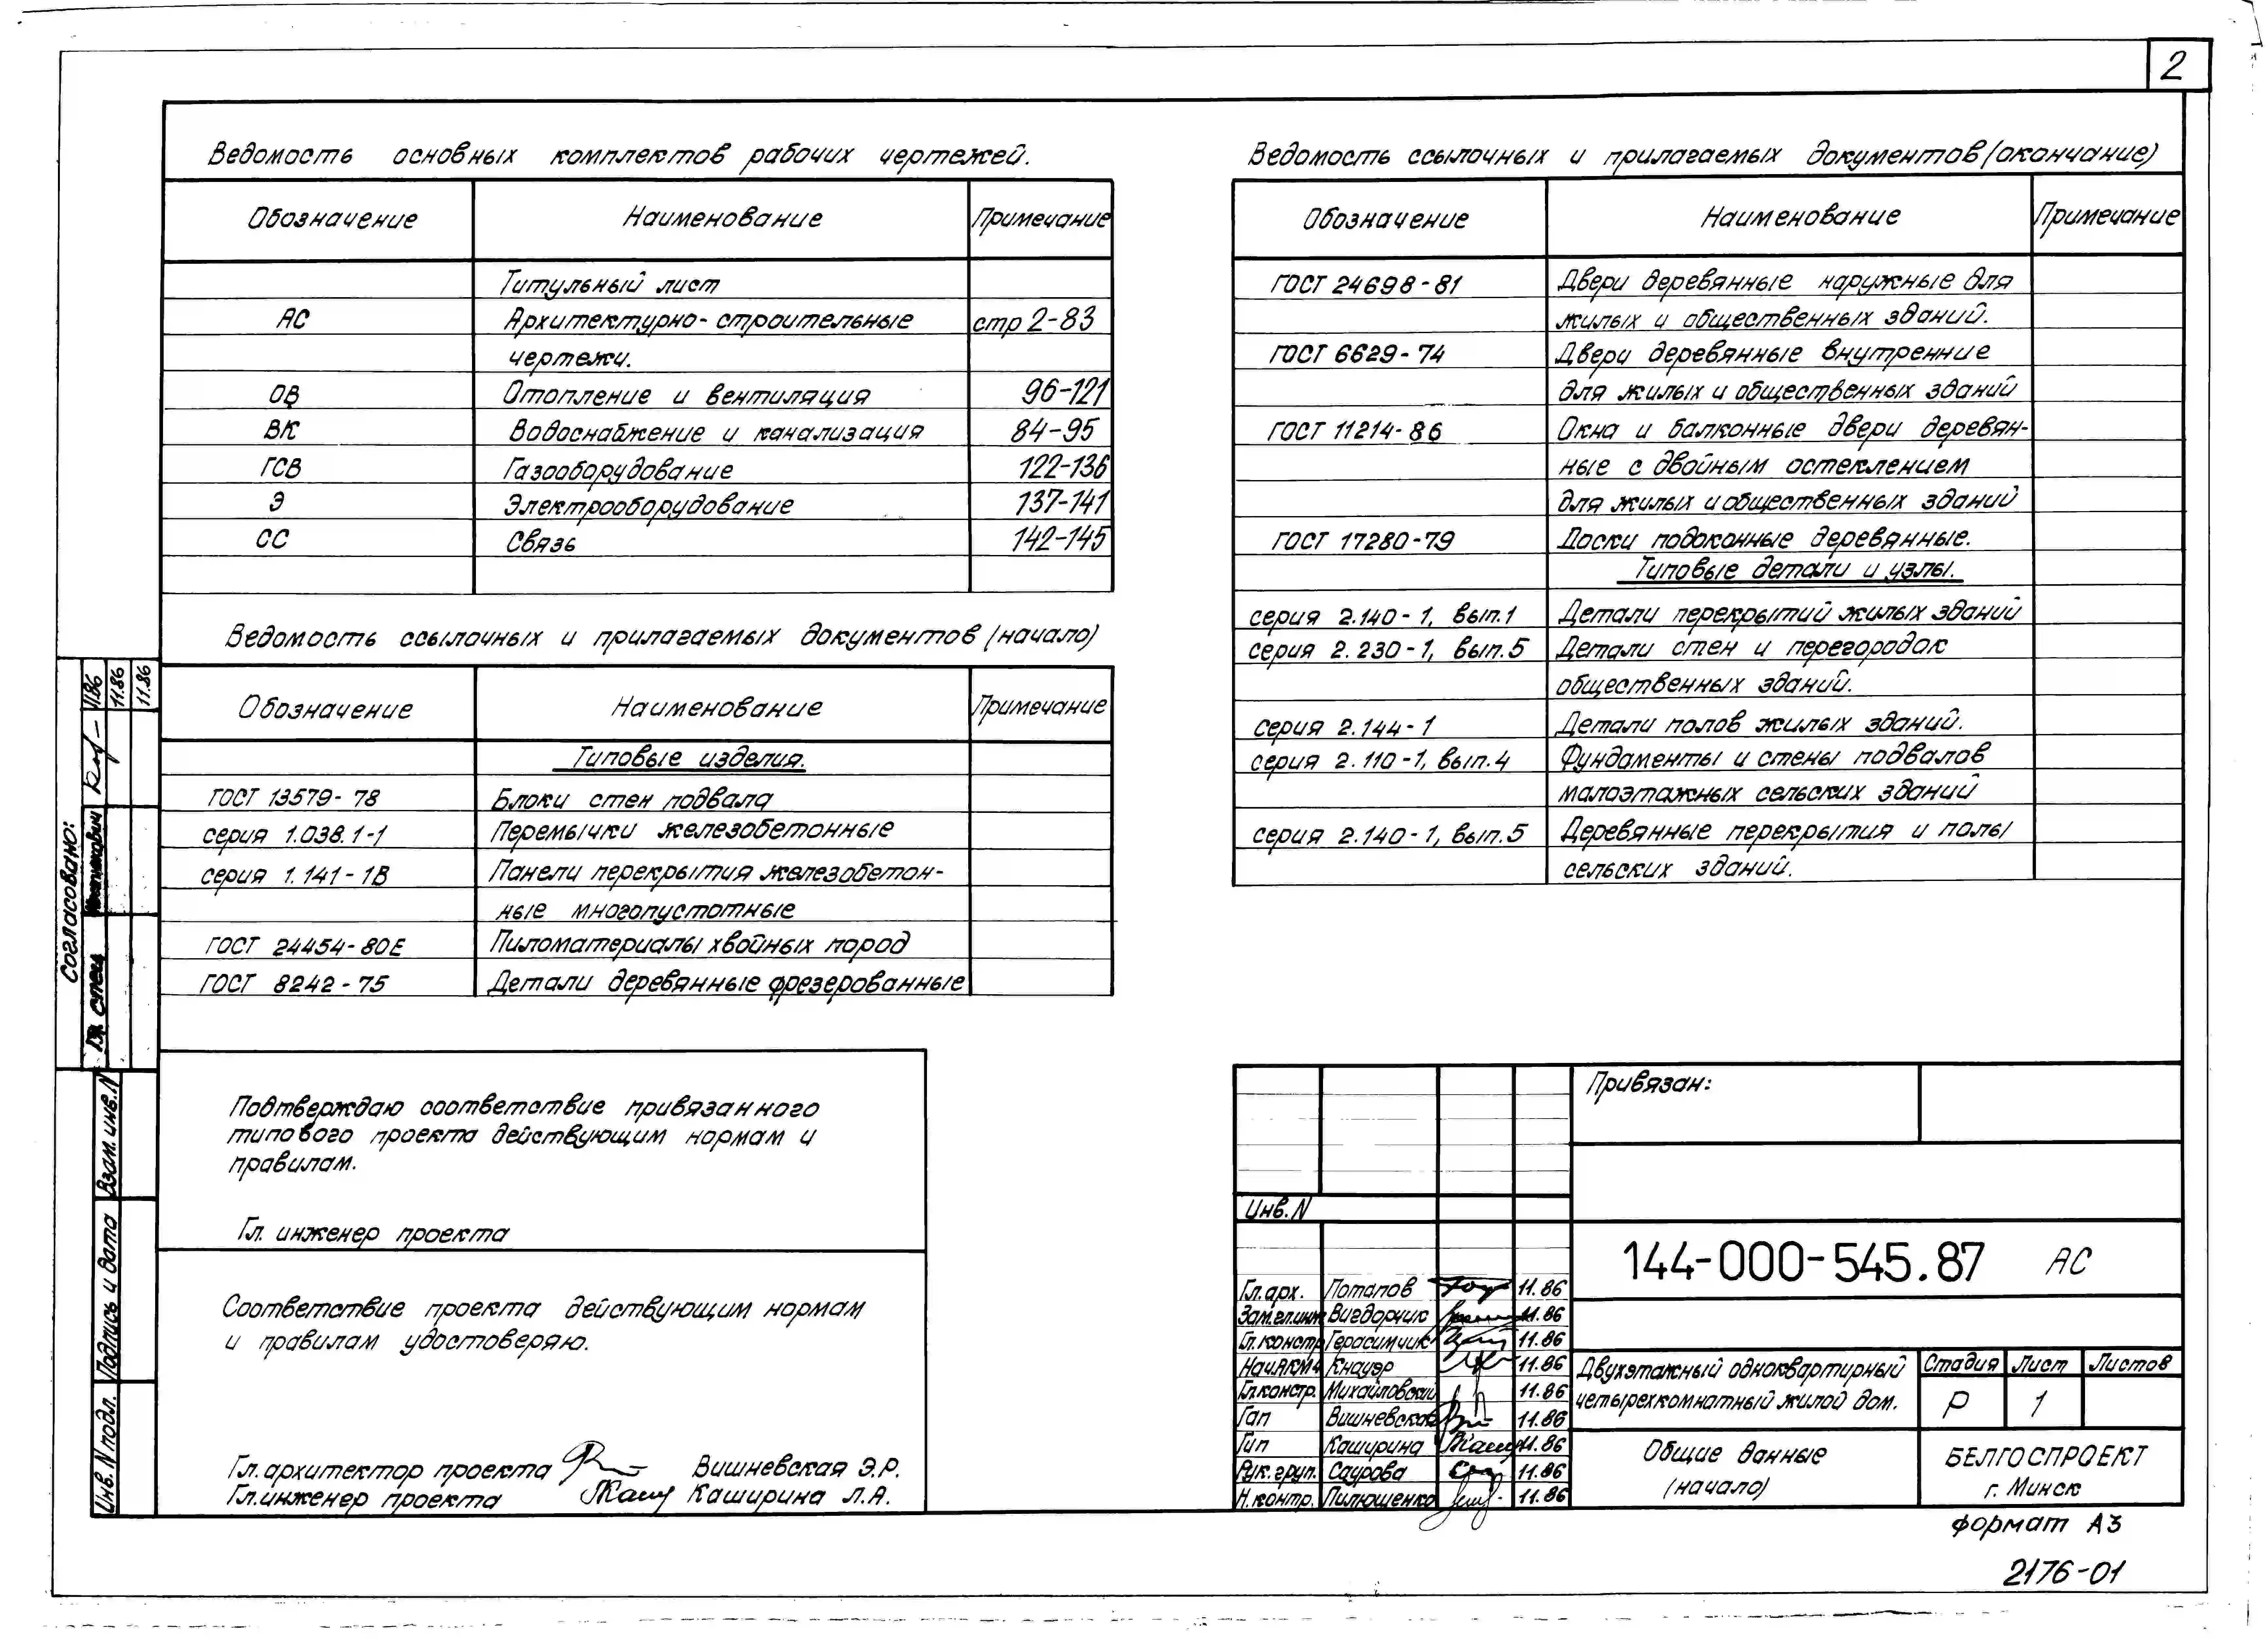 2
Ведомость основных комплектов рабочих чертежей.
Обозначение Наименование Примечание
Титульный лист
АС Архитектурно-строительные стр 2-83
чертежи.
ОВ Отопление и вентиляция 96-121
ВК Водоснабжение и канализация 84-95
ГСВ Газооборудование 122-136
Э Электрооборудование 137-141
СС Связь 142-145
Ведомость ссылочных и прилагаемых документов (начало)
Обозначение Наименование Примечание
Типовые изделия.
ГОСТ 13579-78 Блоки стен подвала
серия 1.038.1-1 Перемычки железобетонные
серия 1.141-1В Панели перекрытия железобетон-
ные многопустотные
ГОСТ 24454-80Е Пиломатериалы хвойных пород
ГОСТ 8242-75 Детали деревянные фрезерованные
Ведомость ссылочных и прилагаемых документов (окончание)
Обозначение Наименование Примечание
ГОСТ 24698-81 Двери деревянные наружные для
жилых и общественных зданий.
ГОСТ 6629-74 Двери деревянные внутренние
для жилых и общественных зданий
ГОСТ 11214-86 Окна и балконные двери деревян-
ные с двойным остеклением
для жилых и общественных зданий
ГОСТ 17280-79 Доски подоконные деревянные.
Типовые детали и узлы.
серия 2.140-1, вып.1 Детали перекрытий жилых зданий
серия 2.230-1, вып.5 Детали стен и перегородок
общественных зданий.
серия 2.144-1 Детали полов жилых зданий.
серия 2.110-1, вып.4 Фундаменты и стены подвалов
малоэтажных сельских зданий
серия 2.140-1, вып.5 Деревянные перекрытия и полы
сельских зданий.
Согласовано:
Гл. спец.
11.86
11.86
11.86
Взам. инв. N
Подпись и дата
Инв. N подл.
Подтверждаю соответствие привязанного
типового проекта действующим нормам и
правилам.
Гл. инженер проекта
Соответствие проекта действующим нормам
и правилам удостоверяю.
Гл. архитектор проекта Вишневская Э.Р.
Гл. инженер проекта Каширина Л.А.
Привязан:
Инв. N
144-000-545.87 АС
Гл. арх. Потапов 11.86
Зам.гл.инж Вигдорчик 11.86
Гл. констр Герасимчик 11.86
Нач.АКМ4 Кнауэр 11.86
Гл.констр. Михайловский 11.86
Гап Вишневская 11.86
Гип Каширина 11.86
Рук. груп. Саурова 11.86
Н. контр. Пилюшенко 11.86
Двухэтажный одноквартирный
четырехкомнатный жилой дом.
Стадия Лист Листов
Р 1
Общие данные
(начало)
БЕЛГОСПРОЕКТ
г. Минск
формат А3
2176-01